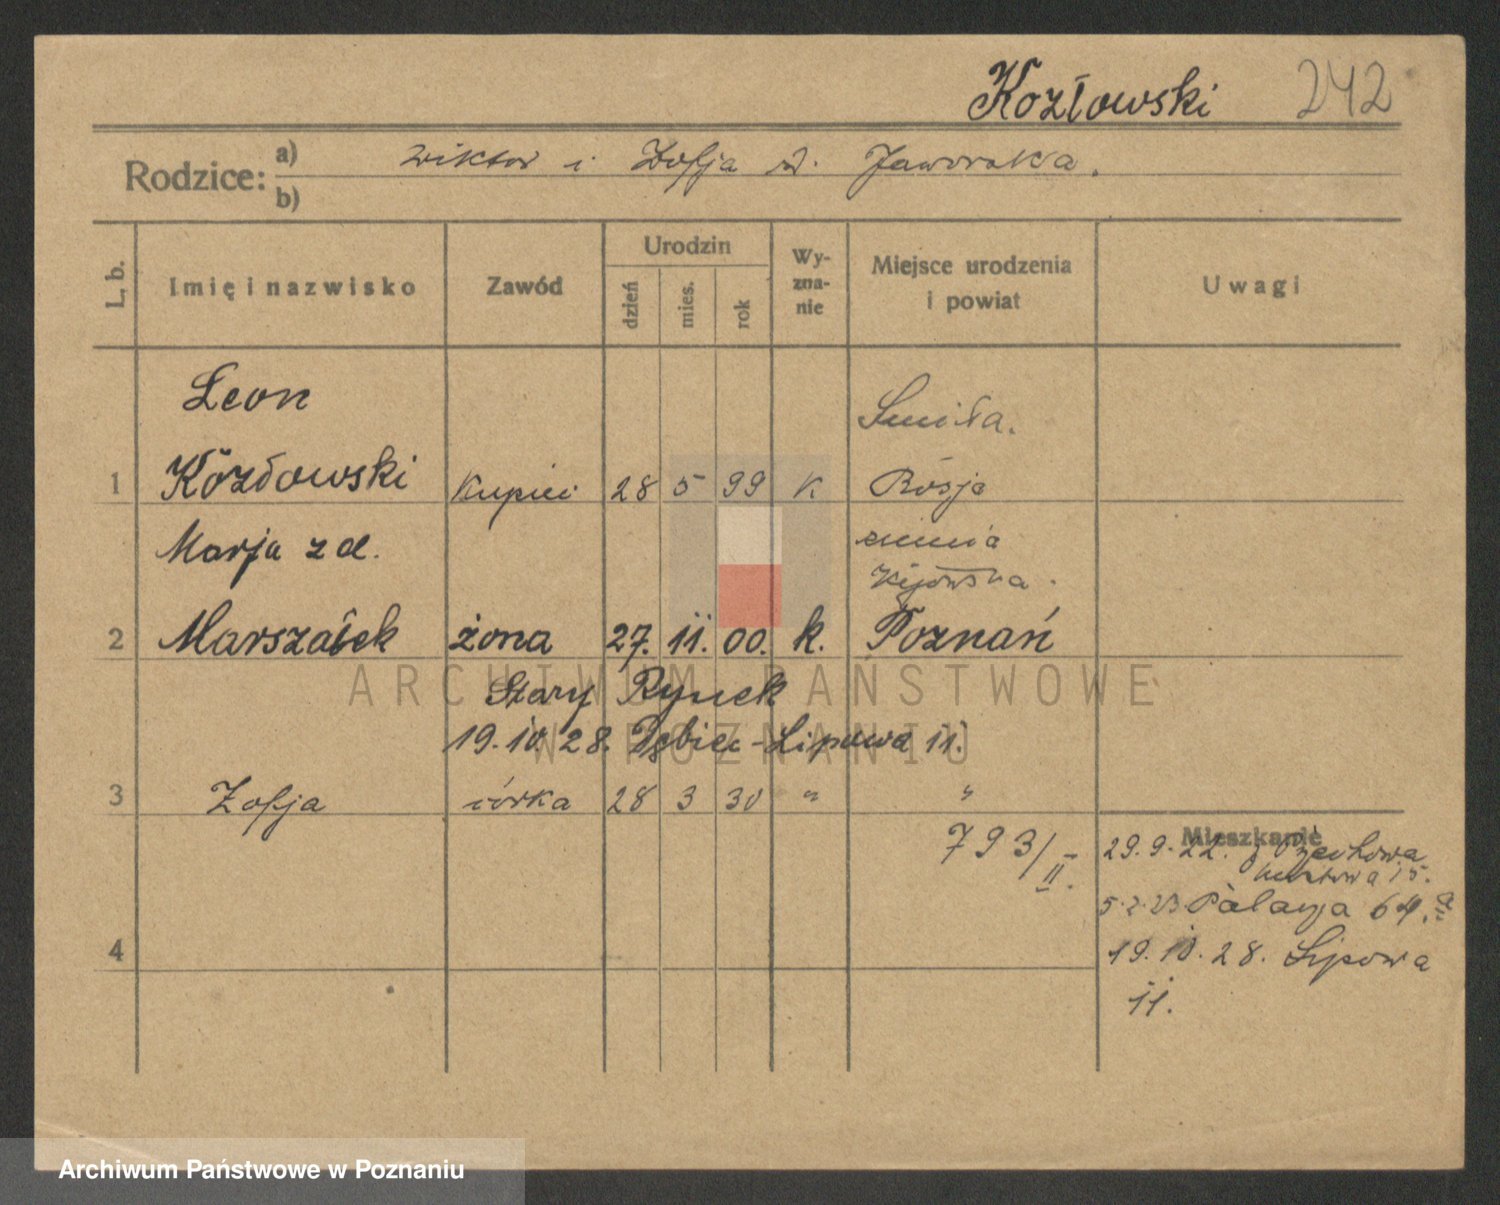 Kozłowski 242
Rodzice: a) Wiktor i Zofja z d. Jaworska.
b)
L. b.
Imię i nazwisko
Zawód
Urodzin
dzień
mies.
rok
Wy-
zna-
nie
Miejsce urodzenia
i powiat
Uwagi
Leon
Smiła.
1 Kozłowski kupiec 28 5 99 k Rosja
Marja z d.
ziemia
Kijowska.
2 Marszałek żona 27. 11. 00. k. Poznań
Stary Rynek
19.10.28. Dębiec-Lipowa 11.
3 Zofja córka 28 3 30 " "
793/II.
Mieszkanie
29.9.22. Czechowa
15.
5.2.23 Palacza 64.a
4
19.10.28. Lipowa
11.
ARCHIWUM PAŃSTWOWE
W POZNANIU
Archiwum Państwowe w Poznaniu